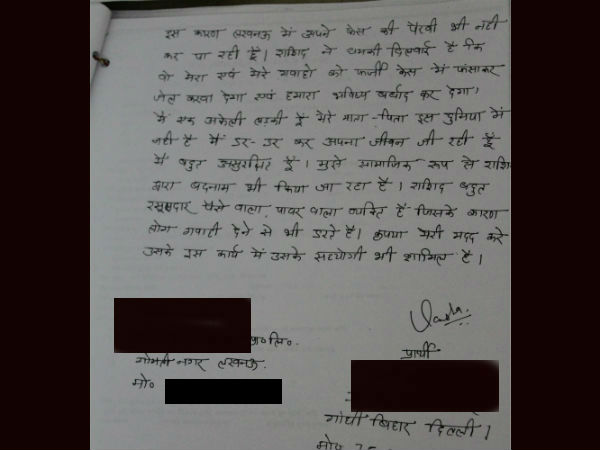 इस कारण लखनऊ में अपने केस की पैरवी भी नही
कर पा रही हूँ। राशिद ने धमकी दिलवाई है कि
वो मेरा एवं मेरे गवाहो को फर्जी केस में फंसाकर
जेल करवा देगा एवं हमारा भविष्य बर्बाद कर देगा।
मैं एक अकेली लडकी हूँ मेरे माता-पिता इस दुनिया में
नही है मैं डर-डर कर अपना जीवन जी रही हूँ
मैं बहुत असुरक्षित हूँ। मुझे सामाजिक रूप से राशि
द्वारा बदनाम भी किया जा रहा है। राशिद बहुत
रसूखदार पैसे वाला पावर वाला व्यक्ति है जिसके कारण
लोग गवाही देने से भी डरते है। कृपया मेरी मदद करे
उसके इस कार्य में उसके सहयोगी भी शामिल है।
प्रार्थी
क०लि०
गोमती नगर लखनऊ
मो०
गाँधी विहार दिल्ली।